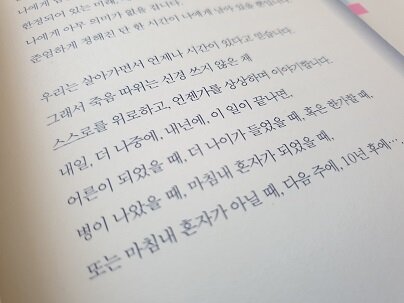 한정되어 있는 미래,
나에게 아무 의미가 없을 겁니다.
준엄하게 정해진 단 한 시간이 나에게 남아 있을 뿐입니다.
우리는 살아가면서 언제나 시간이 있다고 믿습니다.
그래서 죽음 따위는 신경 쓰지 않은 채
스스로를 위로하고, 언젠가를 상상하며 이야기합니다.
내일, 더 나중에, 내년에, 이 일이 끝나면,
어른이 되었을 때, 더 나이가 들었을 때, 혹은 한가할 때,
병이 나았을 때, 마침내 혼자가 되었을 때,
또는 마침내 혼자가 아닐 때, 다음 주에, 10년 후에….